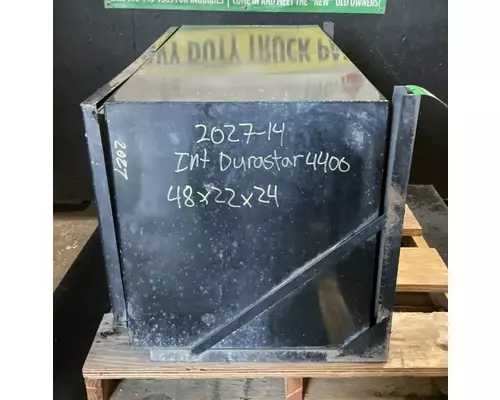 FOR INQUIRIES | COME IN AND MEET THE "NEW" OLD OWNERS!
VY DUTY TRUCK PA
2027-14
Int Durastar 4400
48x22x24
2027